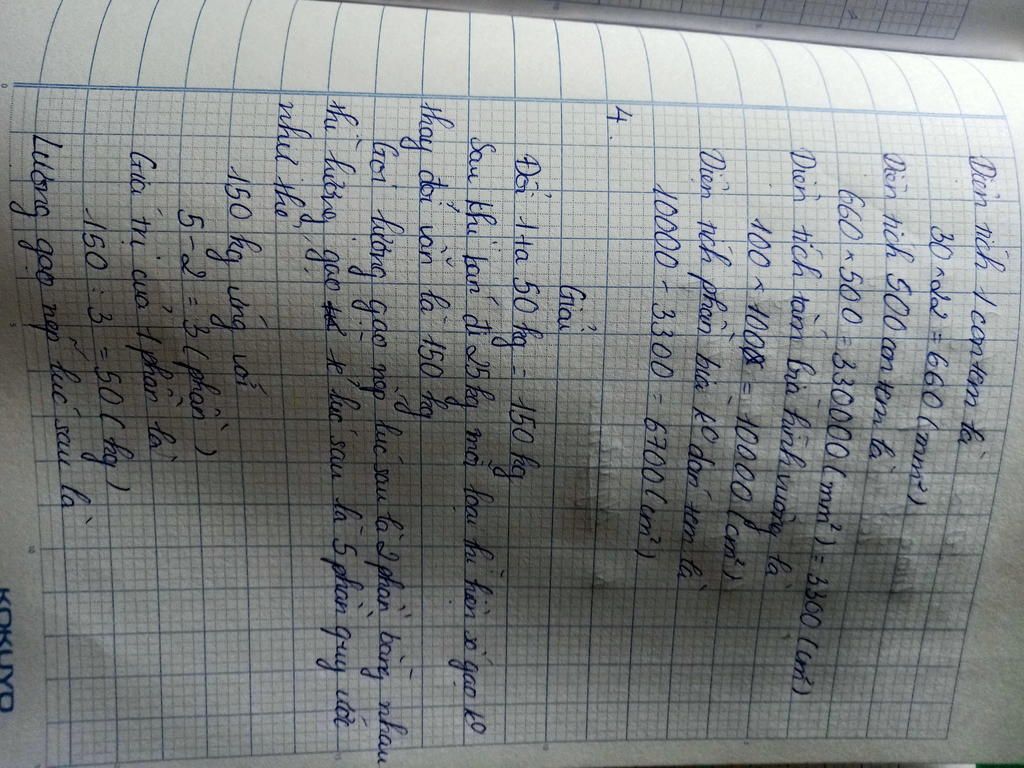 Diện tích 1 con tem là
30 × 22 = 660 (mm²)
Diện tích 500 con tem là
660 × 500 = 330000 (mm²) = 3300 (cm²)
Diện tích tấm bìa hình vuông là
100 × 100 = 10000 (cm²)
Diện tích phần bìa k° dán tem là
10000 - 3300 = 6700 (cm²)
4.
Giải
Đổi 1 tạ 50 kg = 150 kg
Sau khi bán đi 25kg mỗi loại thì hiệu số gạo k°
thay đổi vẫn là 150 kg
Gọi lượng gạo nếp lúc sau là 2 phần bằng nhau
thì lượng gạo tẻ lúc sau là 5 phần
như thế
150 kg ứng với
5 - 2 = 3 (phần)
Giá trị của 1 phần là
150 : 3 = 50 (kg)
Lượng gạo nếp lúc sau là
KOKUYO